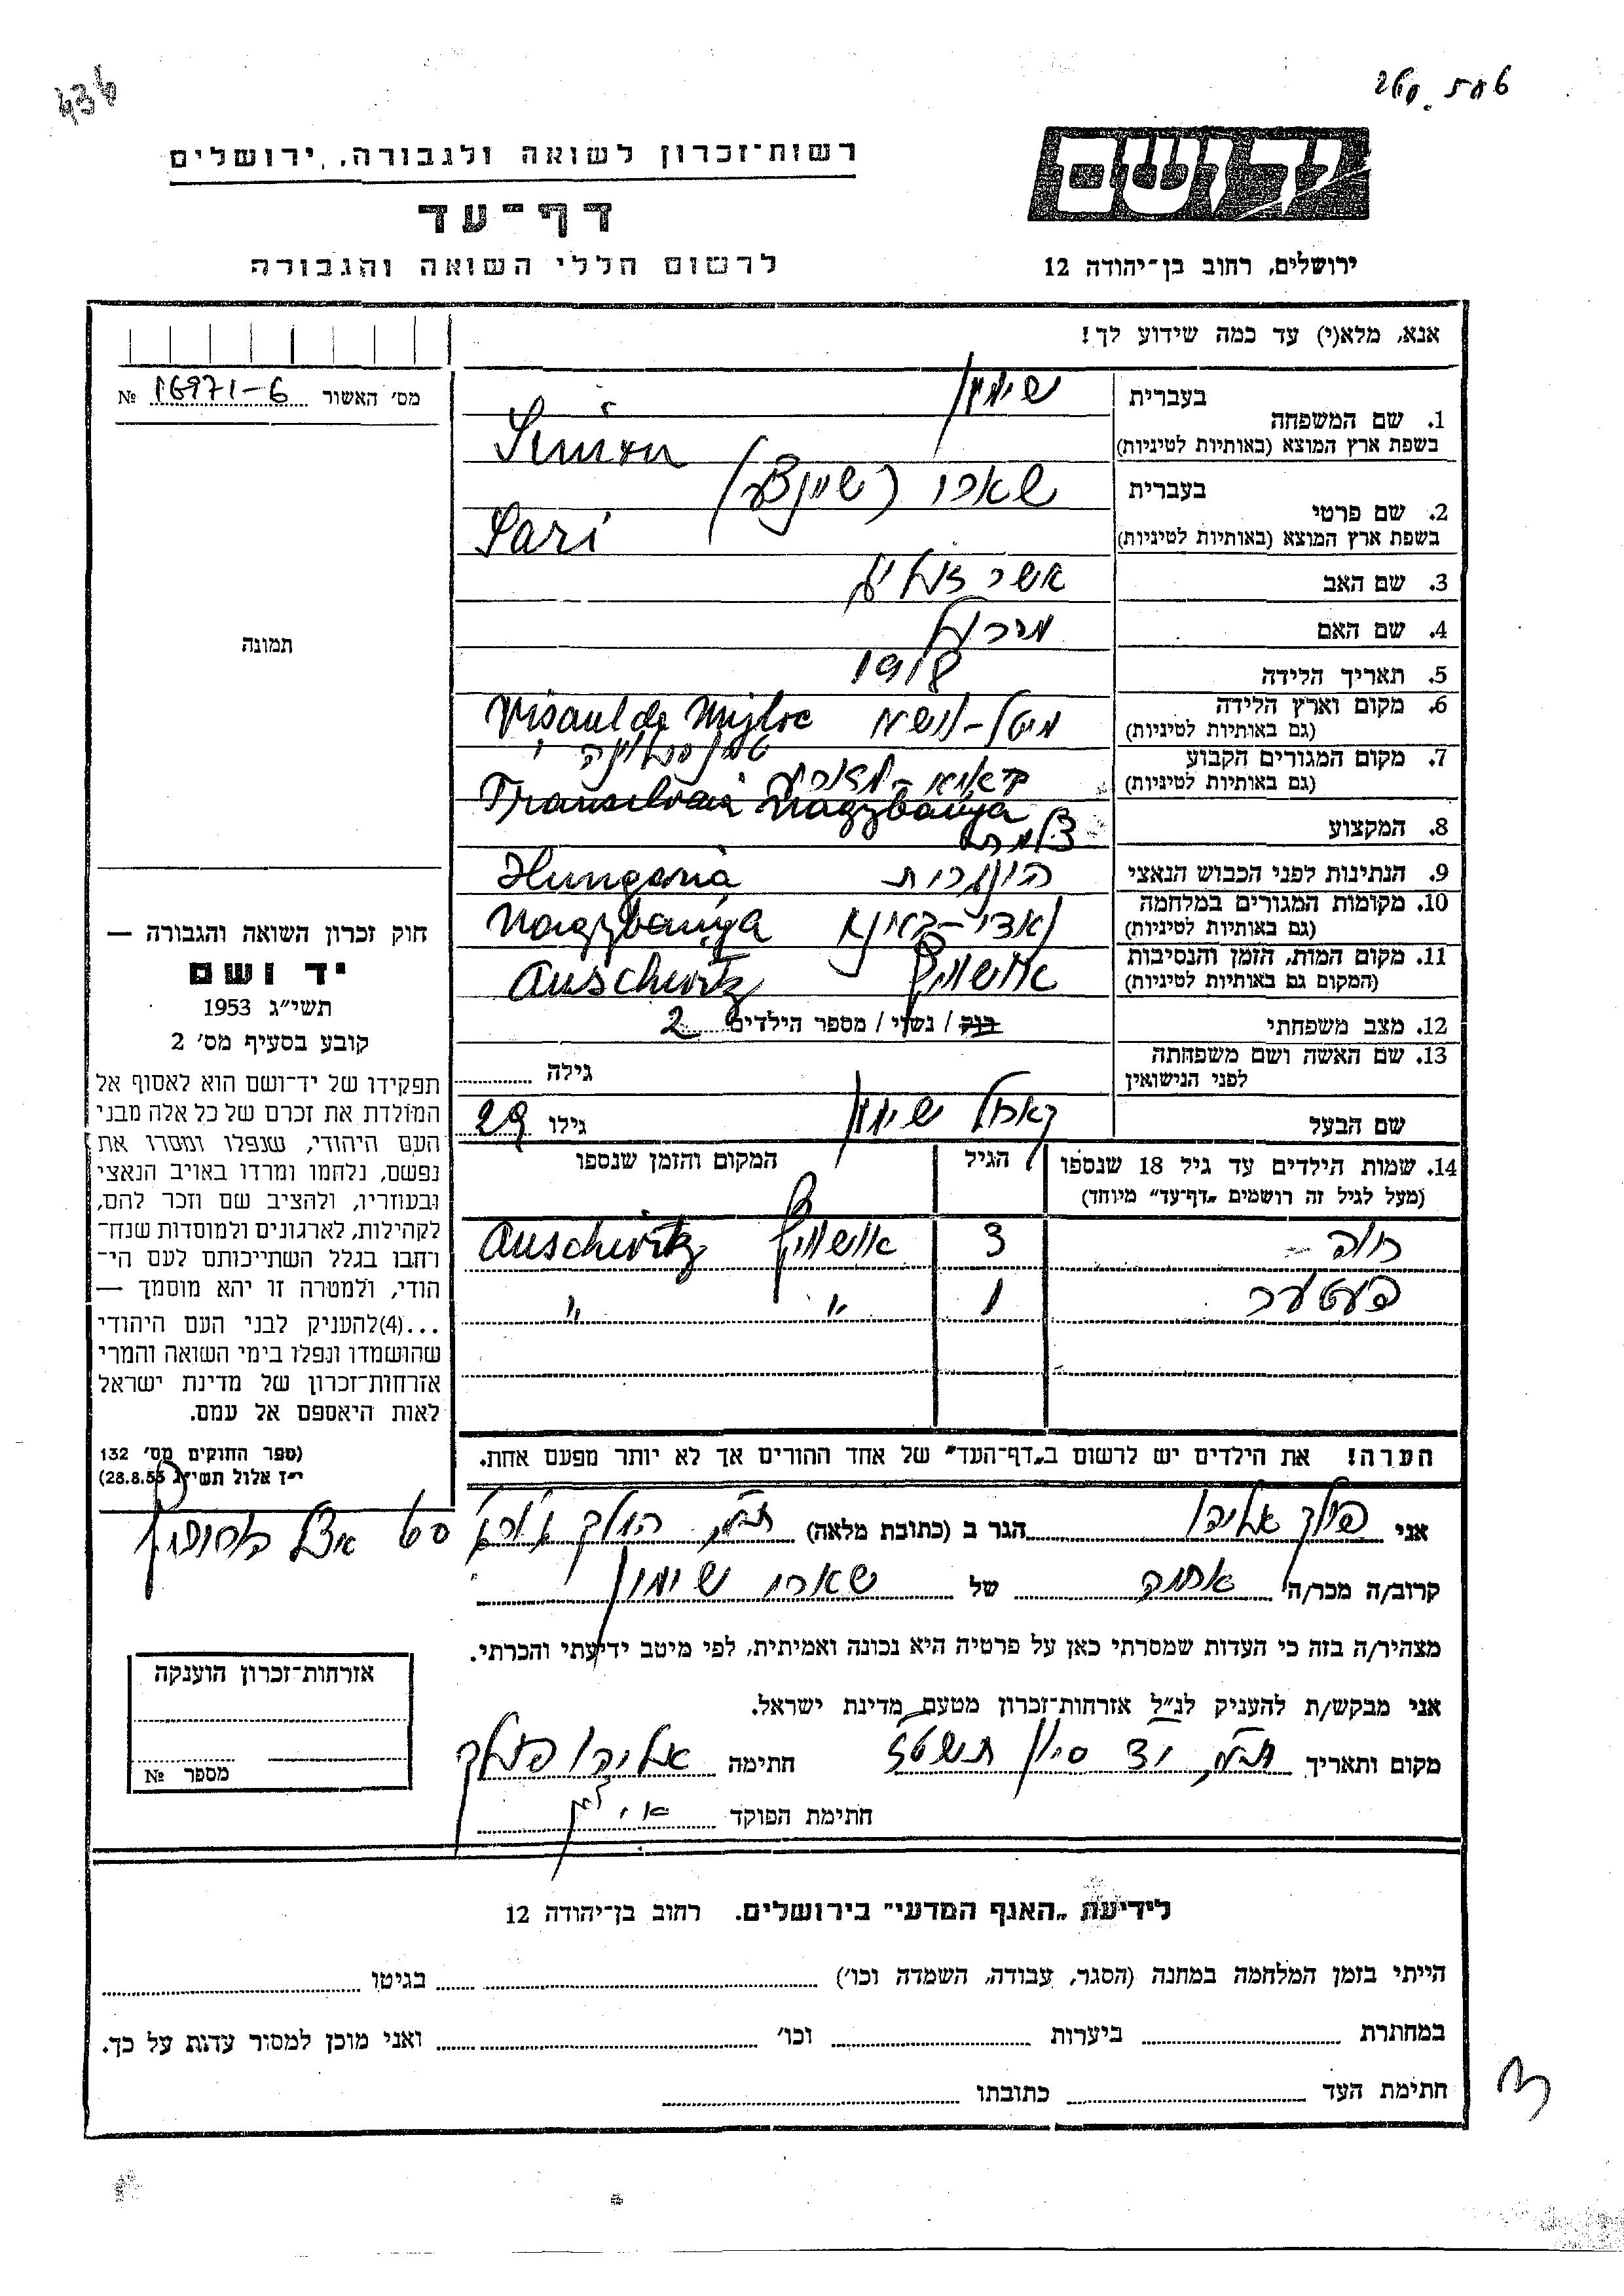 436
יד ושם
ירושלים, רחוב בן־יהודה 12
רשות־זכרון לשואה ולגבורה, ירושלים
דף־עד
לרשום חללי השואה והגבורה
אנא, מלא(י) עד כמה שידוע לך!
מס׳ האשור № 16971-6
תמונה
1. שם המשפחה בעברית שימון
בשפת ארץ המוצא (באותיות לטיניות) Simon
2. שם פרטי בעברית שארי (שיינצע)
בשפת ארץ המוצא (באותיות לטיניות) Sari
3. שם האב אשר זעליג
4. שם האם
5. תאריך הלידה 1918
6. מקום וארץ הלידה (גם באותיות לטיניות) Visaul de Mijloc
7. מקום המגורים הקבוע (גם באותיות לטיניות) Nagybanya
8. המקצוע
9. הנתינות לפני הכבוש הנאצי הונגרית Hungaria
10. מקומות המגורים במלחמה (גם באותיות לטיניות) נאדי-באניא Nagybanya
11. מקום המות, הזמן והנסיבות (המקום גם באותיות לטיניות) אושוויץ Auschwitz
12. מצב משפחתי רוק / נשוי / מספר הילדים 2
13. שם האשה ושם משפחתה לפני הנישואין גילה
שם הבעל קארול שימון גילו 29
14. שמות הילדים עד גיל 18 שנספו (מעל לגיל זה רושמים „דף־עד” מיוחד) הגיל המקום והזמן שנספו
חוה 3 אושוויץ Auschwitz
פעטער 1 " "
הערה! את הילדים יש לרשום ב„דף־העד” של אחד ההורים אך לא יותר מפעם אחת.
חוק זכרון השואה והגבורה —
יד ושם
תשי״ג 1953
קובע בסעיף מס׳ 2
תפקידו של יד־ושם הוא לאסוף אל
המולדת את זכרם של כל אלה מבני
העם היהודי, שנפלו ומסרו את
נפשם, נלחמו ומרדו באויב הנאצי
ובעוזריו, ולהציב שם וזכר להם,
לקהילות, לארגונים ולמוסדות שנח־
רחבו בגלל השתייכותם לעם הי־
הודי, ולמטרה זו יהא מוסמך —
...(4)להעניק לבני העם היהודי
שהושמדו ונפלו בימי השואה והמרי
אזרחות־זכרון של מדינת ישראל
לאות היאספם אל עמם.
(ספר החוקים מס׳ 132
י״ז אלול תשי״ג 28.8.53)
אני פולק אליהו הגר ב (כתובת מלאה)
קרוב/ה מכר/ה של שארי שימון
מצהיר/ה בזה כי העדות שמסרתי כאן על פרטיה היא נכונה ואמיתית, לפי מיטב ידיעתי והכרתי.
אני מבקש/ת להעניק לנ״ל אזרחות־זכרון מטעם מדינת ישראל.
מקום ותאריך סיון חתימה אליהו פולק
חתימת הפוקד
אזרחות־זכרון הוענקה
מספר №
לידיעת „האגף המדעי” בירושלים. רחוב בן־יהודה 12
הייתי בזמן המלחמה במחנה (הסגר, עבודה, השמדה וכו׳) בגיטו
במחתרת ביערות וכו׳ ואני מוכן למסור עדות על כך.
חתימת העד כתובתו